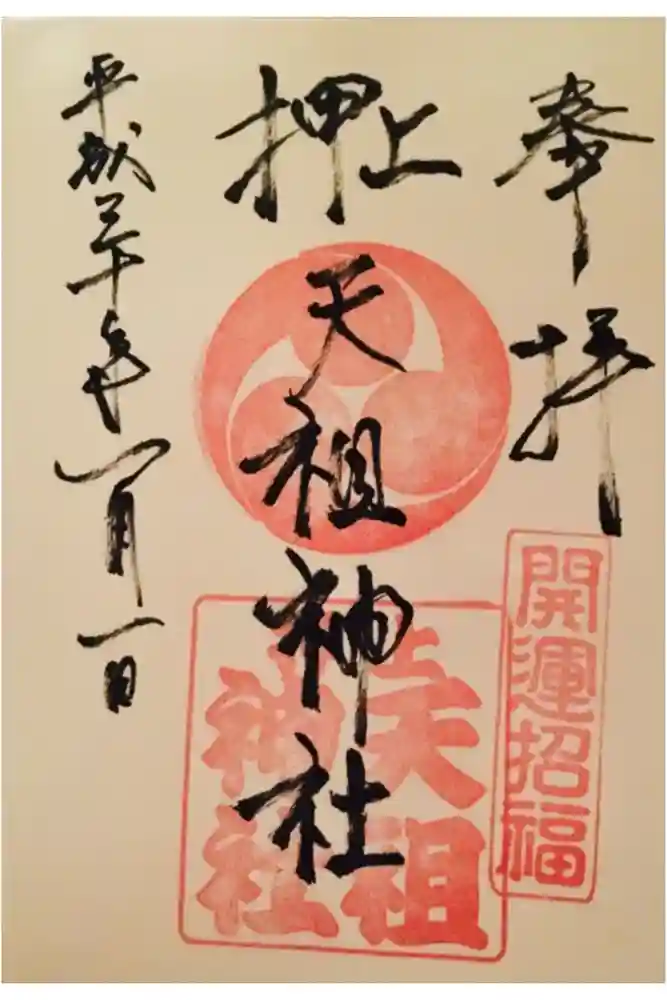 奉拝
開運招福
押上
天祖神社
上天祖
神社
平成三十年一月一日